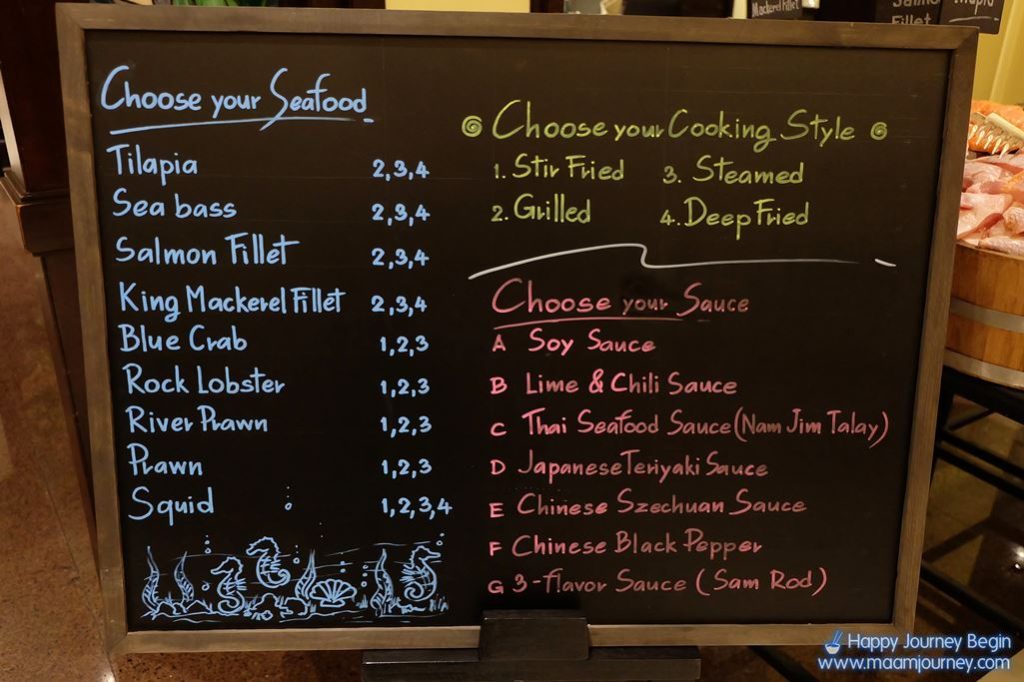 Mackerel Fillet
Salmo
Fillet
Choose your Seafood
Tilapia 2,3,4
Sea bass 2,3,4
Salmon Fillet 2,3,4
King Mackerel Fillet 2,3,4
Blue Crab 1,2,3
Rock Lobster 1,2,3
River Prawn 1,2,3
Prawn 1,2,3
Squid 1,2,3,4
Choose your Cooking Style
1. Stir Fried 3. Steamed
2. Grilled 4. Deep Fried
Choose your Sauce
A Soy Sauce
B Lime & Chili Sauce
C Thai Seafood Sauce (Nam Jim Talay)
D Japanese Teriyaki Sauce
E Chinese Szechuan Sauce
F Chinese Black Pepper
G 3-flavor Sauce (Sam Rod)
Happy Journey Begin
www.maamjourney.com